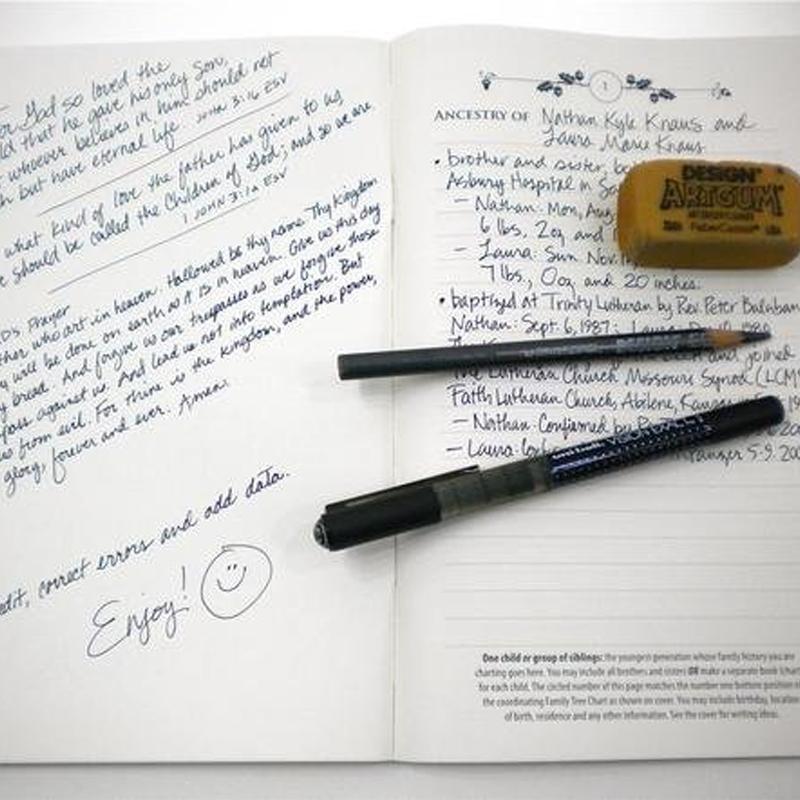 or God so loved the
ld that he gave his only Son,
t whoever believes in him should not
h but have eternal life. JOHN 3:16 ESV
what kind of love the father has given to us,
e should be called the Children of God; and so we are.
1 JOHN 3:1A ESV
D's Prayer
ther who art in heaven. Hallowed be thy name. Thy Kingdom
y will be done on earth as it is in heaven. Give us this day
y bread. And forgive us our trespasses as we forgive those
pass against us. And lead us not into temptation. But
us from evil. For thine is the kingdom, and the power,
glory, forever and ever. Amen.
edit, correct errors and add data.
Enjoy!
1
ANCESTRY OF Nathan Kyle Kraus and
Laura Marie Kraus
• brother and sister,
Asbury Hospital in
– Nathan: Mon, Aug
6 lbs, 2oz, and
– Laura: Sun Nov.
7 lbs, 0oz, and 20 inches.
• baptized at Trinity Lutheran by Rev. Peter Burnban
Nathan: Sept. 6, 1987;
and joined
The Lutheran Church Missouri Synod (LCM
Faith Lutheran Church, Abilene,
– Nathan: Confirmed by
– Laura: 5.9.200
DESIGN
ARTGUM
FaberCastell
uni-ball
VISION
One child or group of siblings: the youngest generation whose family history you are
charting goes here. You may include all brothers and sisters OR make a separate book (chart
for each child. The circled number of this page matches the number one bottom position
the coordinating Family Tree Chart as shown on cover. You may include birthday, location
of birth, residence and any other information. See the cover for writing ideas.